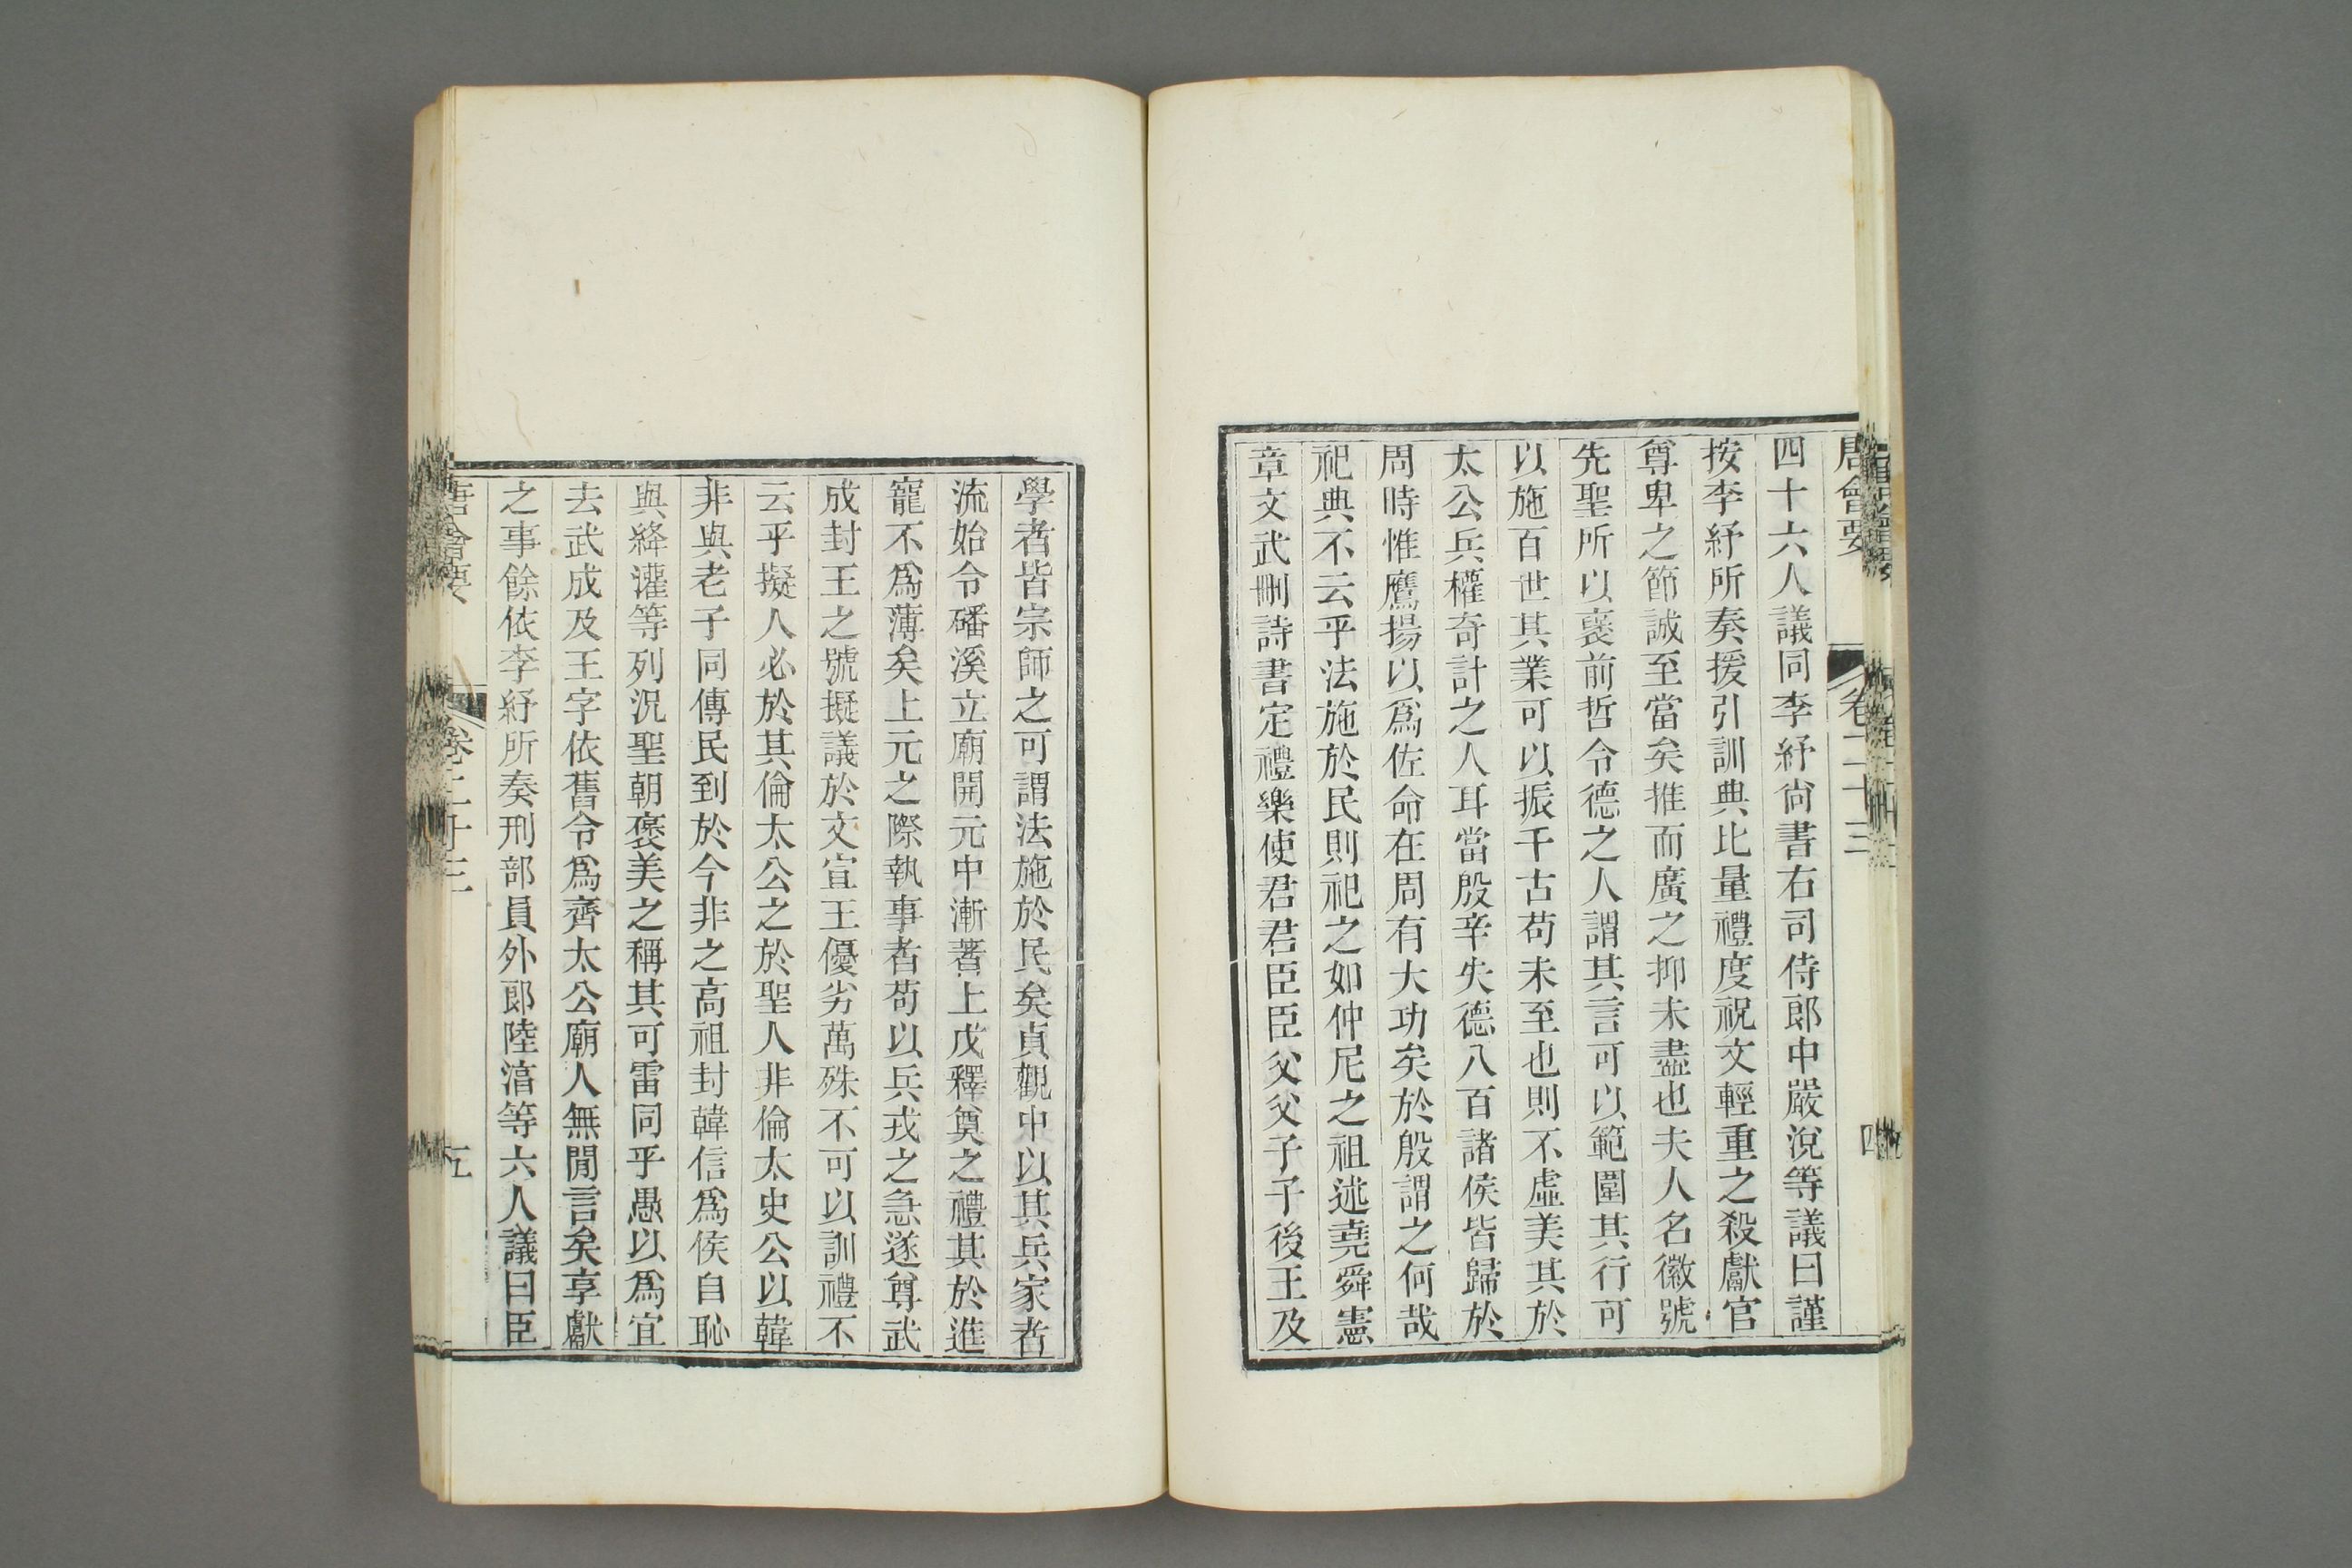 唐會要 卷二十三 四
四十六人議同李紓尙書右司侍郎中嚴涚等議曰謹
按李紓所奏援引訓典比量禮度祝文輕重之殺獻官
尊卑之節誠至當矣推而廣之抑未盡也夫人名徽號
先聖所以襃前哲令德之人謂其言可以範圍其行可
以施百世其業可以振千古苟未至也則不虛美其於
太公兵權奇計之人耳當殷辛失德八百諸侯皆歸於
周時惟鷹揚以爲佐命在周有大功矣於殷謂之何哉
祀典不云乎法施於民則祀之如仲尼之祖述堯舜憲
章文武刪詩書定禮樂使君君臣臣父父子子後王及
學者皆宗師之可謂法施於民矣貞觀中以其兵家者
流始令磻溪立廟開元中漸著上戊釋奠之禮其於進
寵不爲薄矣上元之際執事者苟以兵戎之急遂尊武
成封王之號擬議於文宣王優劣萬殊不可以訓禮不
云乎擬人必於其倫太公之於聖人非倫太史公以韓
非與老子同傳民到於今非之高祖封韓信爲侯自恥
與絳灌等列況聖朝襃美之稱其可雷同乎愚以爲宜
去武成及王字依舊令爲齊太公廟人無閒言矣享獻
之事餘依李紓所奏刑部員外郎陸淯等六人議曰臣
唐會要 卷二十三 五